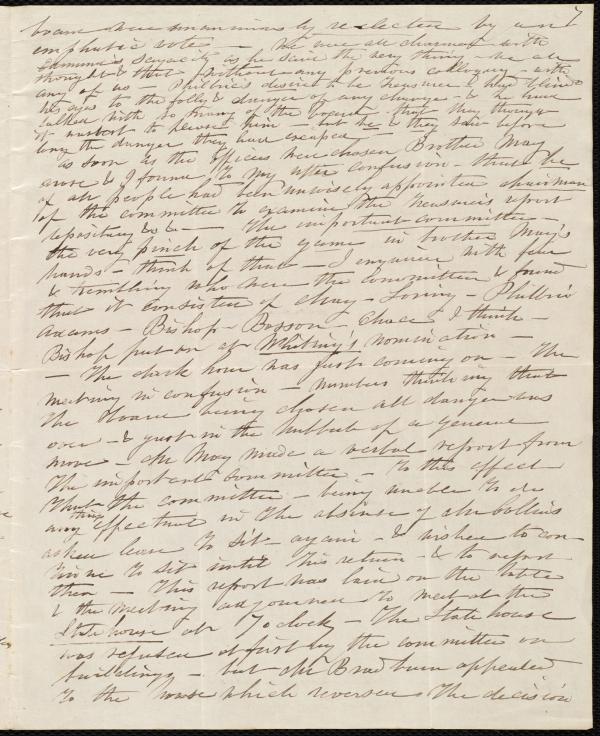 7
board were unanimously re-elected by an
emphatic vote — We were all charmed with
Edmund's sagacity as he said the very thing — we all
thought & that without any previous colloquy with
any of us — Philbric's desire to be treasurer had blind
his eyes to the folly & danger of any change — & he had
talked with so many of the board that they thought
it was best to have him — but he & they saw before
long the danger they have escaped —
as soon as the officers were chosen Brother May
arose & I found to my utter confusion — that he
of all people had been unwisely appointed chairman
of the committee to examine the treasurer's report
depository &c &c — The important committee —
the very pinch of the game in brother May's
hands — think of that — I enquired with fear
& trembling who were the Committee & found
that it consisted of May — Loring — Philbric
Adams — Bishop — Bosson — Chace I think —
Bishop put on at Whiting's nomination —
— The dark hour was just coming on — The
meeting in confusion — numbers thinking that
the board being chosen all danger was
over — & just in the hubbub of a general
move — Mr May made a verbal report from
the important committee — to this effect
that the committee — being unable to do
any thing effectual in the absence of Mr Collins
asked leave to sit again — & wished to con-
tinue to sit until his return — & to report
then — This report was laid on the table
& the meeting adjourned to meet at the
State house at 7 o'clock — The State house
was refused at first by the committee on
buildings — but Mr Bradburn appealed
to the house which reversed the decision